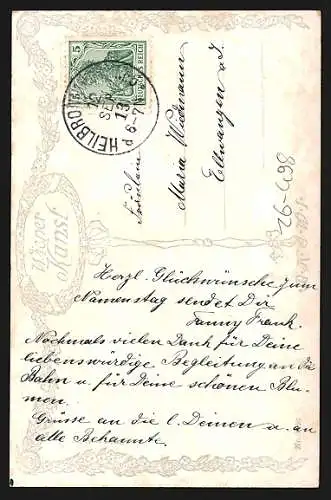 5
DEUTSCHES REICH
HEILBRONN
SEP
13
6-7
Fräulein
Maria Wiedemann
Ellwangen a. J.
26-498
Wiener
Kunst
Herzl. Glückwünsche zum
Namenstag sendet Dir
Fanny Frank.
Nochmals vielen Dank für Deine
liebenswürdige Begleitung an die
Bahn u. für Deine schönen Blu-
men.
Grüsse an die l. Deinen u. an
alle Bekannte.